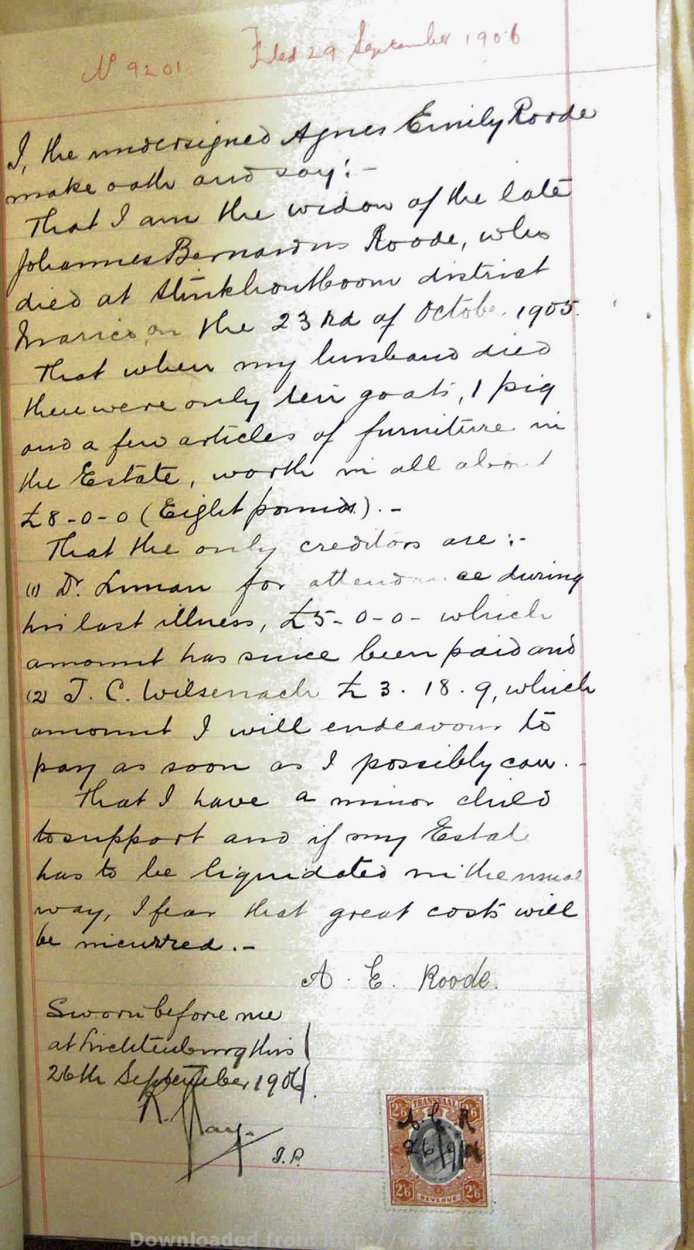 No 9201 Filed 29 September 1906
I, the undersigned Agnes Emily Roode
make oath and say:-
That I am the widow of the late
Johannes Bernardus Roode, who
died at Stinkhoutboom district
Marico, on the 23rd of October 1905.
That when my husband died
there were only ten goats, 1 pig
and a few articles of furniture in
the Estate, worth in all about
£8-0-0 (Eight pounds).-
That the only creditors are:-
(1) Dr. for attendance during
his last illness, £5-0-0- which
amount has since been paid and
(2) J. C. Wilsenach £3.18.9, which
amount I will endeavour to
pay as soon as I possibly can.-
That I have a minor child
to support and if my Estate
has to be liquidated in the usual
way, I fear that great costs will
be incurred.-
A. E. Roode.
Sworn before me
at Lichtenburg this
26th September 1906.
J.P.
2/6 TRANSVAAL 2/6
A E R
26/9/06
2/6 REVENUE 2/6
Downloaded from http://www.eg